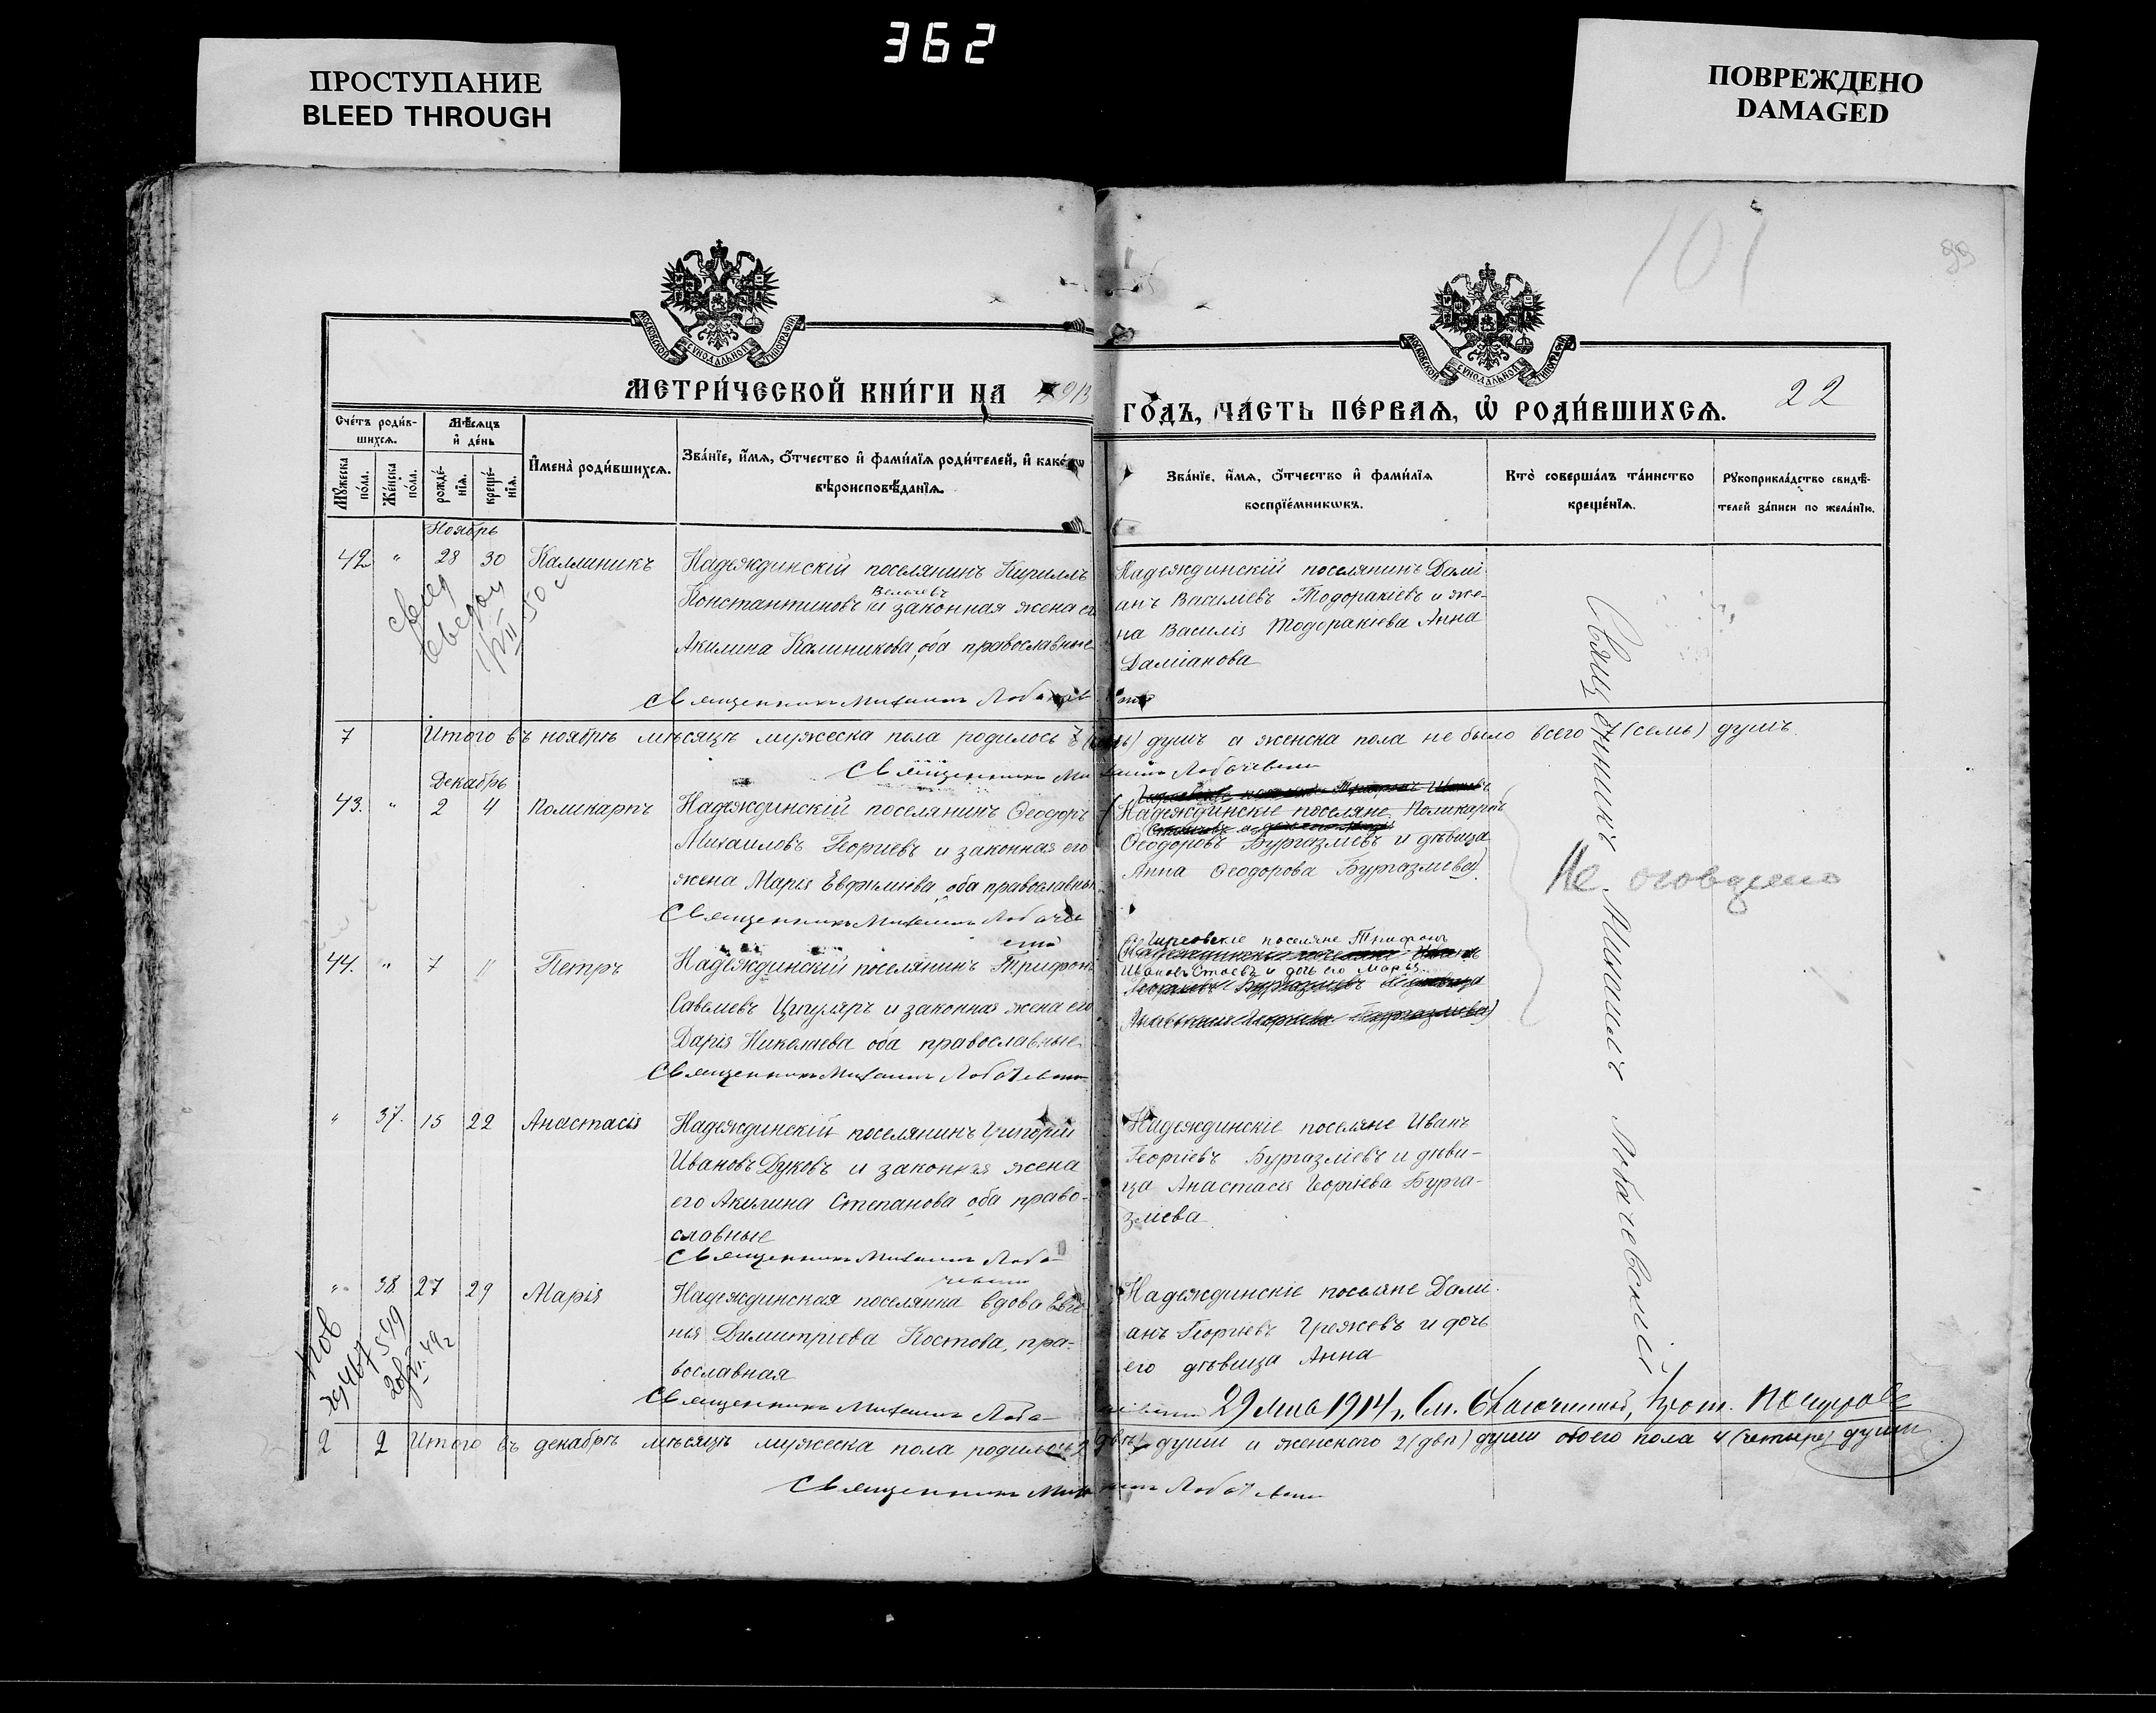 362
ПРОСТУПАНИЕ
BLEED THROUGH
ПОВРЕЖДЕНО
DAMAGED
101
99
МОСКОВСКОЙ СУНОДАЛЬНОЙ ТИПОГРАФІИ
МОСКОВСКОЙ СУНОДАЛЬНОЙ ТИПОГРАФІИ
МЕТРИ́ЧЕСКОЙ КНИ́ГИ НА 1913
ГО́ДЪ, ЧА́СТЬ ПЕ́РВАѦ, Ѡ҆ РОДИ́ВШИХСѦ.
22
Сче́тъ роди́в-
шихсѧ.
Мѣ́сѧцъ
и҆ де́нь
Мꙋ́жеска
по́ла.
Же́нска
по́ла.
рожде́-
нїѧ.
креще́-
нїѧ.
И҆мена̀ роди́вшихсѧ.
Зва́нїе, и҆́мѧ, ѻ҆́тчество и҆ фами́лїѧ роди́телей, и҆ како́гѡ
вѣроисповѣ́данїѧ.
Зва́нїе, и҆́мѧ, ѻ҆́тчество и҆ фами́лїѧ
воспрїе́мникѡвъ.
Кто̀ соверша́лъ та́инство
креще́нїѧ.
Рꙋкоприкла́дство свидѣ́-
телей за́писи по жела́нїю.
Ноябрь
42 " 28 30 Каллиникъ
Надеждинскій поселянинъ Кириллъ
Вельчевъ
Константиновъ и законная жена его
Акилина Калиникова, оба православные
Священникъ Михаилъ Лобачевскій
Надеждинскій поселянинъ Дамі
анъ Василіевъ Тодоракіевъ и же-
на Василія Тодоракіева Анна
Даміанова
7 Итого въ ноябрѣ мѣсяцѣ мужеска пола родилось 7 (семь) душъ а женска пола не было всего 7 (семь) душъ.
Священникъ Михаилъ Лобачевскій
Декабрь
43. " 2 4 Поликарпъ
Надеждинскій поселянинъ Ѳеодоръ
Михаиловъ Георгіевъ и законная его
жена Марія Евфиміева, оба православные
Священникъ Михаилъ Лобаче
вскій
(Надеждинскіе поселяне Поликарпъ
Ѳеодоровъ Бургазліевъ и дѣвица
Анна Ѳеодорова Бургазліева)
Не оговорено
44. " 7 11 Петръ
Надеждинскій поселянинъ Трифонъ
Савельевъ Цигуляръ и законная жена его
Дарія Николаева оба православные
Священникъ Михаилъ Лобачевскій
поселяне Трифонъ
Ивановъ Стоевъ и дочь его Марія
" 37. 15 22 Анастасія
Надеждинскій поселянинъ Григорій
Ивановъ Дуковъ и законная жена
его Акилина Степанова оба право-
славные
Священникъ Михаилъ Лоба-
чевскій
Надеждинскіе поселяне Иванъ
Георгіевъ Бургазліевъ и дѣви-
ца Анастасія Георгіева Бурга-
зліева
" 38 27 29 Марія
Надеждинская поселянка вдова Евге
нія Димитріева Костова, пра-
вославная
Священникъ Михаилъ Лобачевскій
Надеждинскіе поселяне Дамі-
анъ Георгіевъ Грежевъ и дочь
его дѣвица Анна
Священникъ Михаилъ Лобачевскій
2 2 Итого въ декабрѣ мѣсяцѣ мужеска пола родилось 2 (двѣ) души и женского 2 (двѣ) души обоего пола 4 (четыре) души
Священникъ Михаилъ Лобачевскій